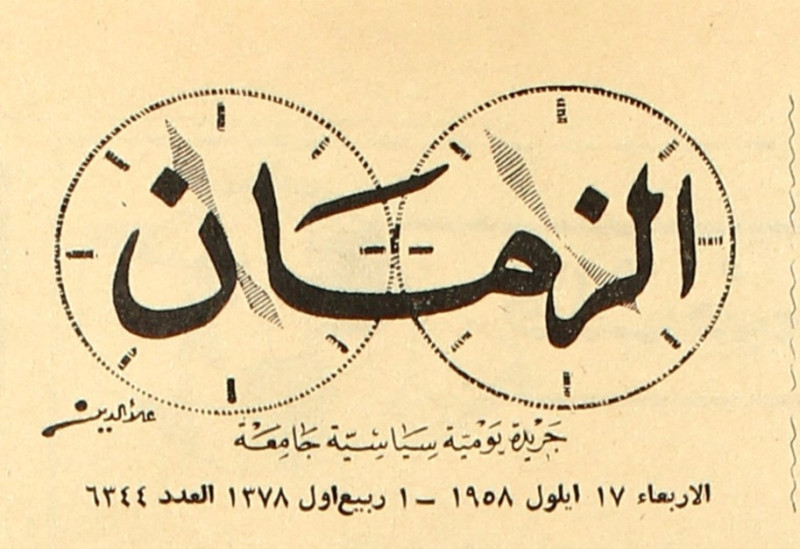 الزمان
علاء الدين
جَريدة يَوميّة سِيَاسِيّة جَامِعَة
الاربعاء ١٧ ايلول ١٩٥٨ – ١ ربيع اول ١٣٧٨ العدد ٦٣٤٤